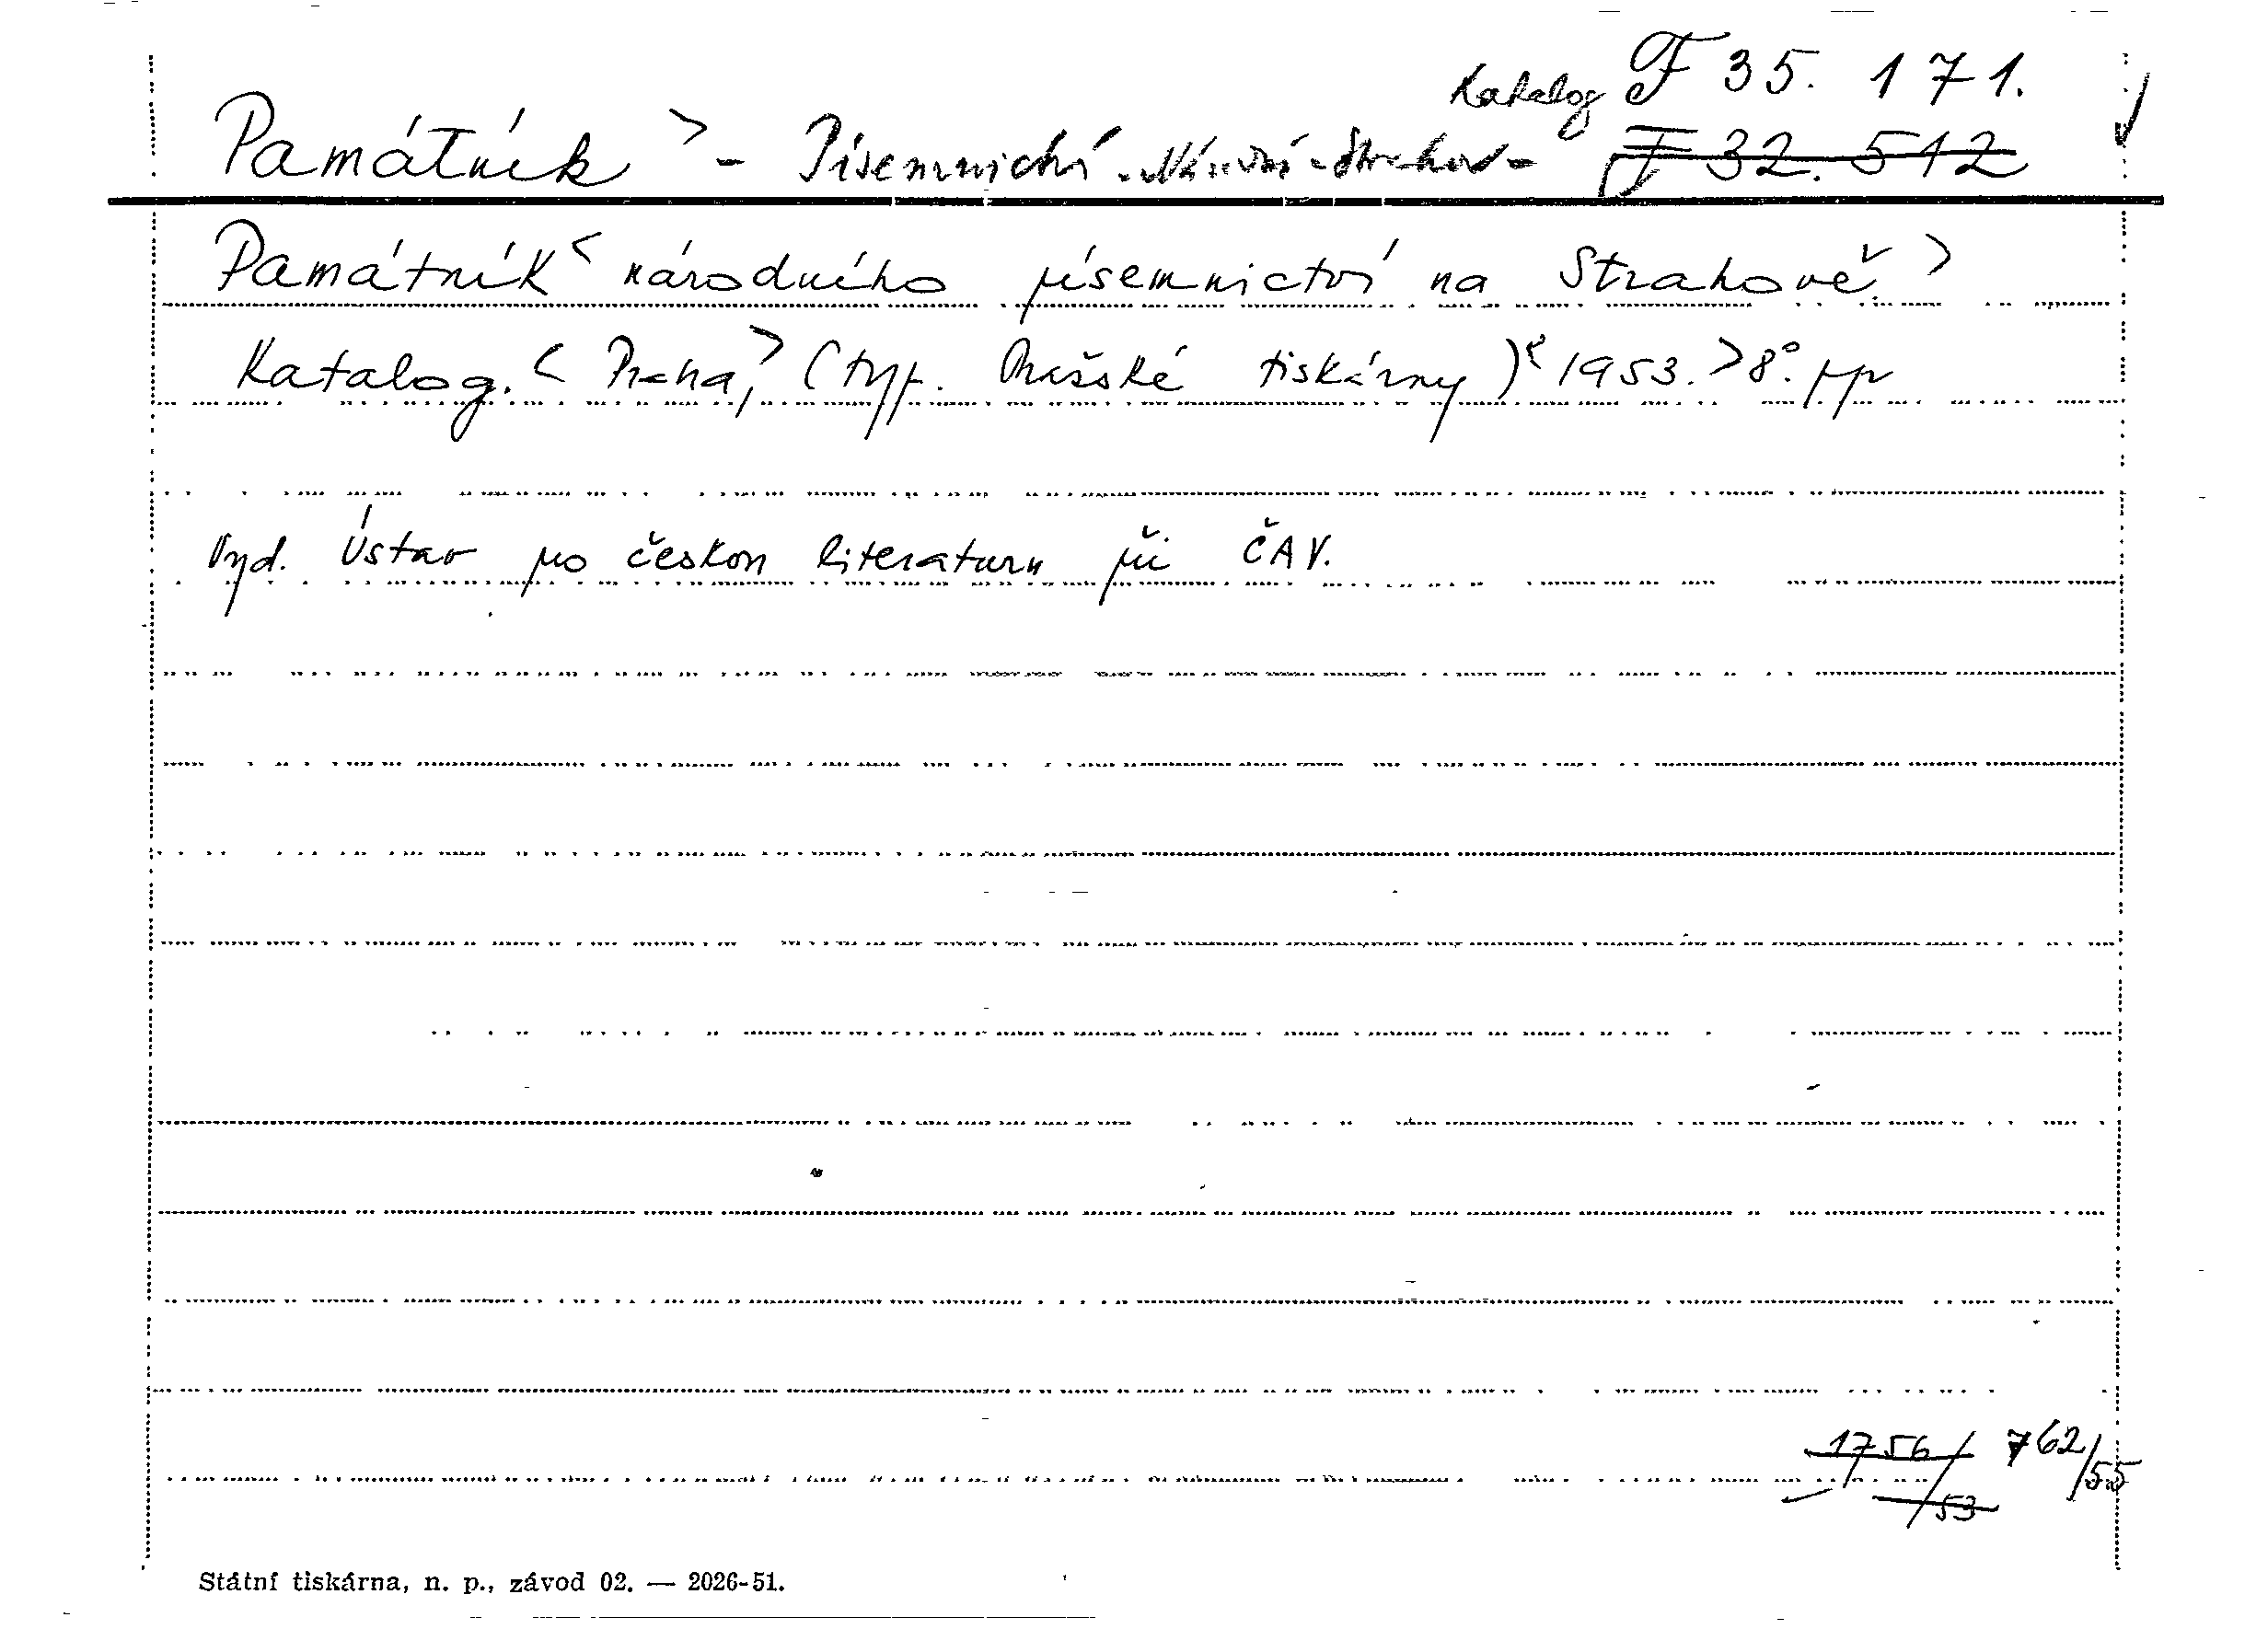 Katalog F 35. 171.
Památník > - Písemnictví - Národní - Strahov - F 32. 512
Památník < národního písemnictví na Strahově >
Katalog. < Praha, > (typ. Pražské tiskárny) < 1953. > 8°. pp
Vyd. Ústav pro českou literaturu při ČAV.
1756/53 762/55
Státní tiskárna, n. p., závod 02. — 2026-51.